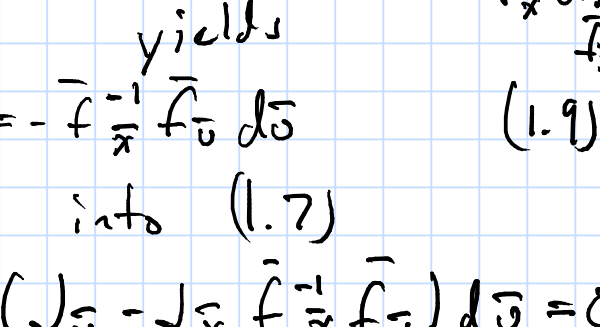 yields
= - f̄_x̄^{-1} f̄_ū dū (1.9)
into (1.7)
(J_ū - J_x̄ f̄_x̄^{-1} f̄_ū) dū = 0